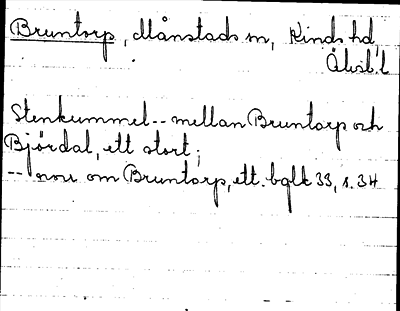 Bruntorp, Månstads sn, Kinds hd
Älvsb. l
Stenkummel -- mellan Bruntorp och
Björdal, ett stort;
-- nov om Bruntorp, ett. bglk 33, s. 34